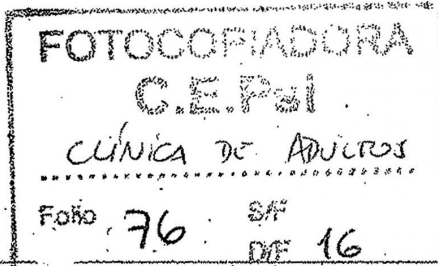 FOTOCOPIADORA
C.E.Psi
CLÍNICA DE ADULTOS
Folio 76 S/F
D/F 16